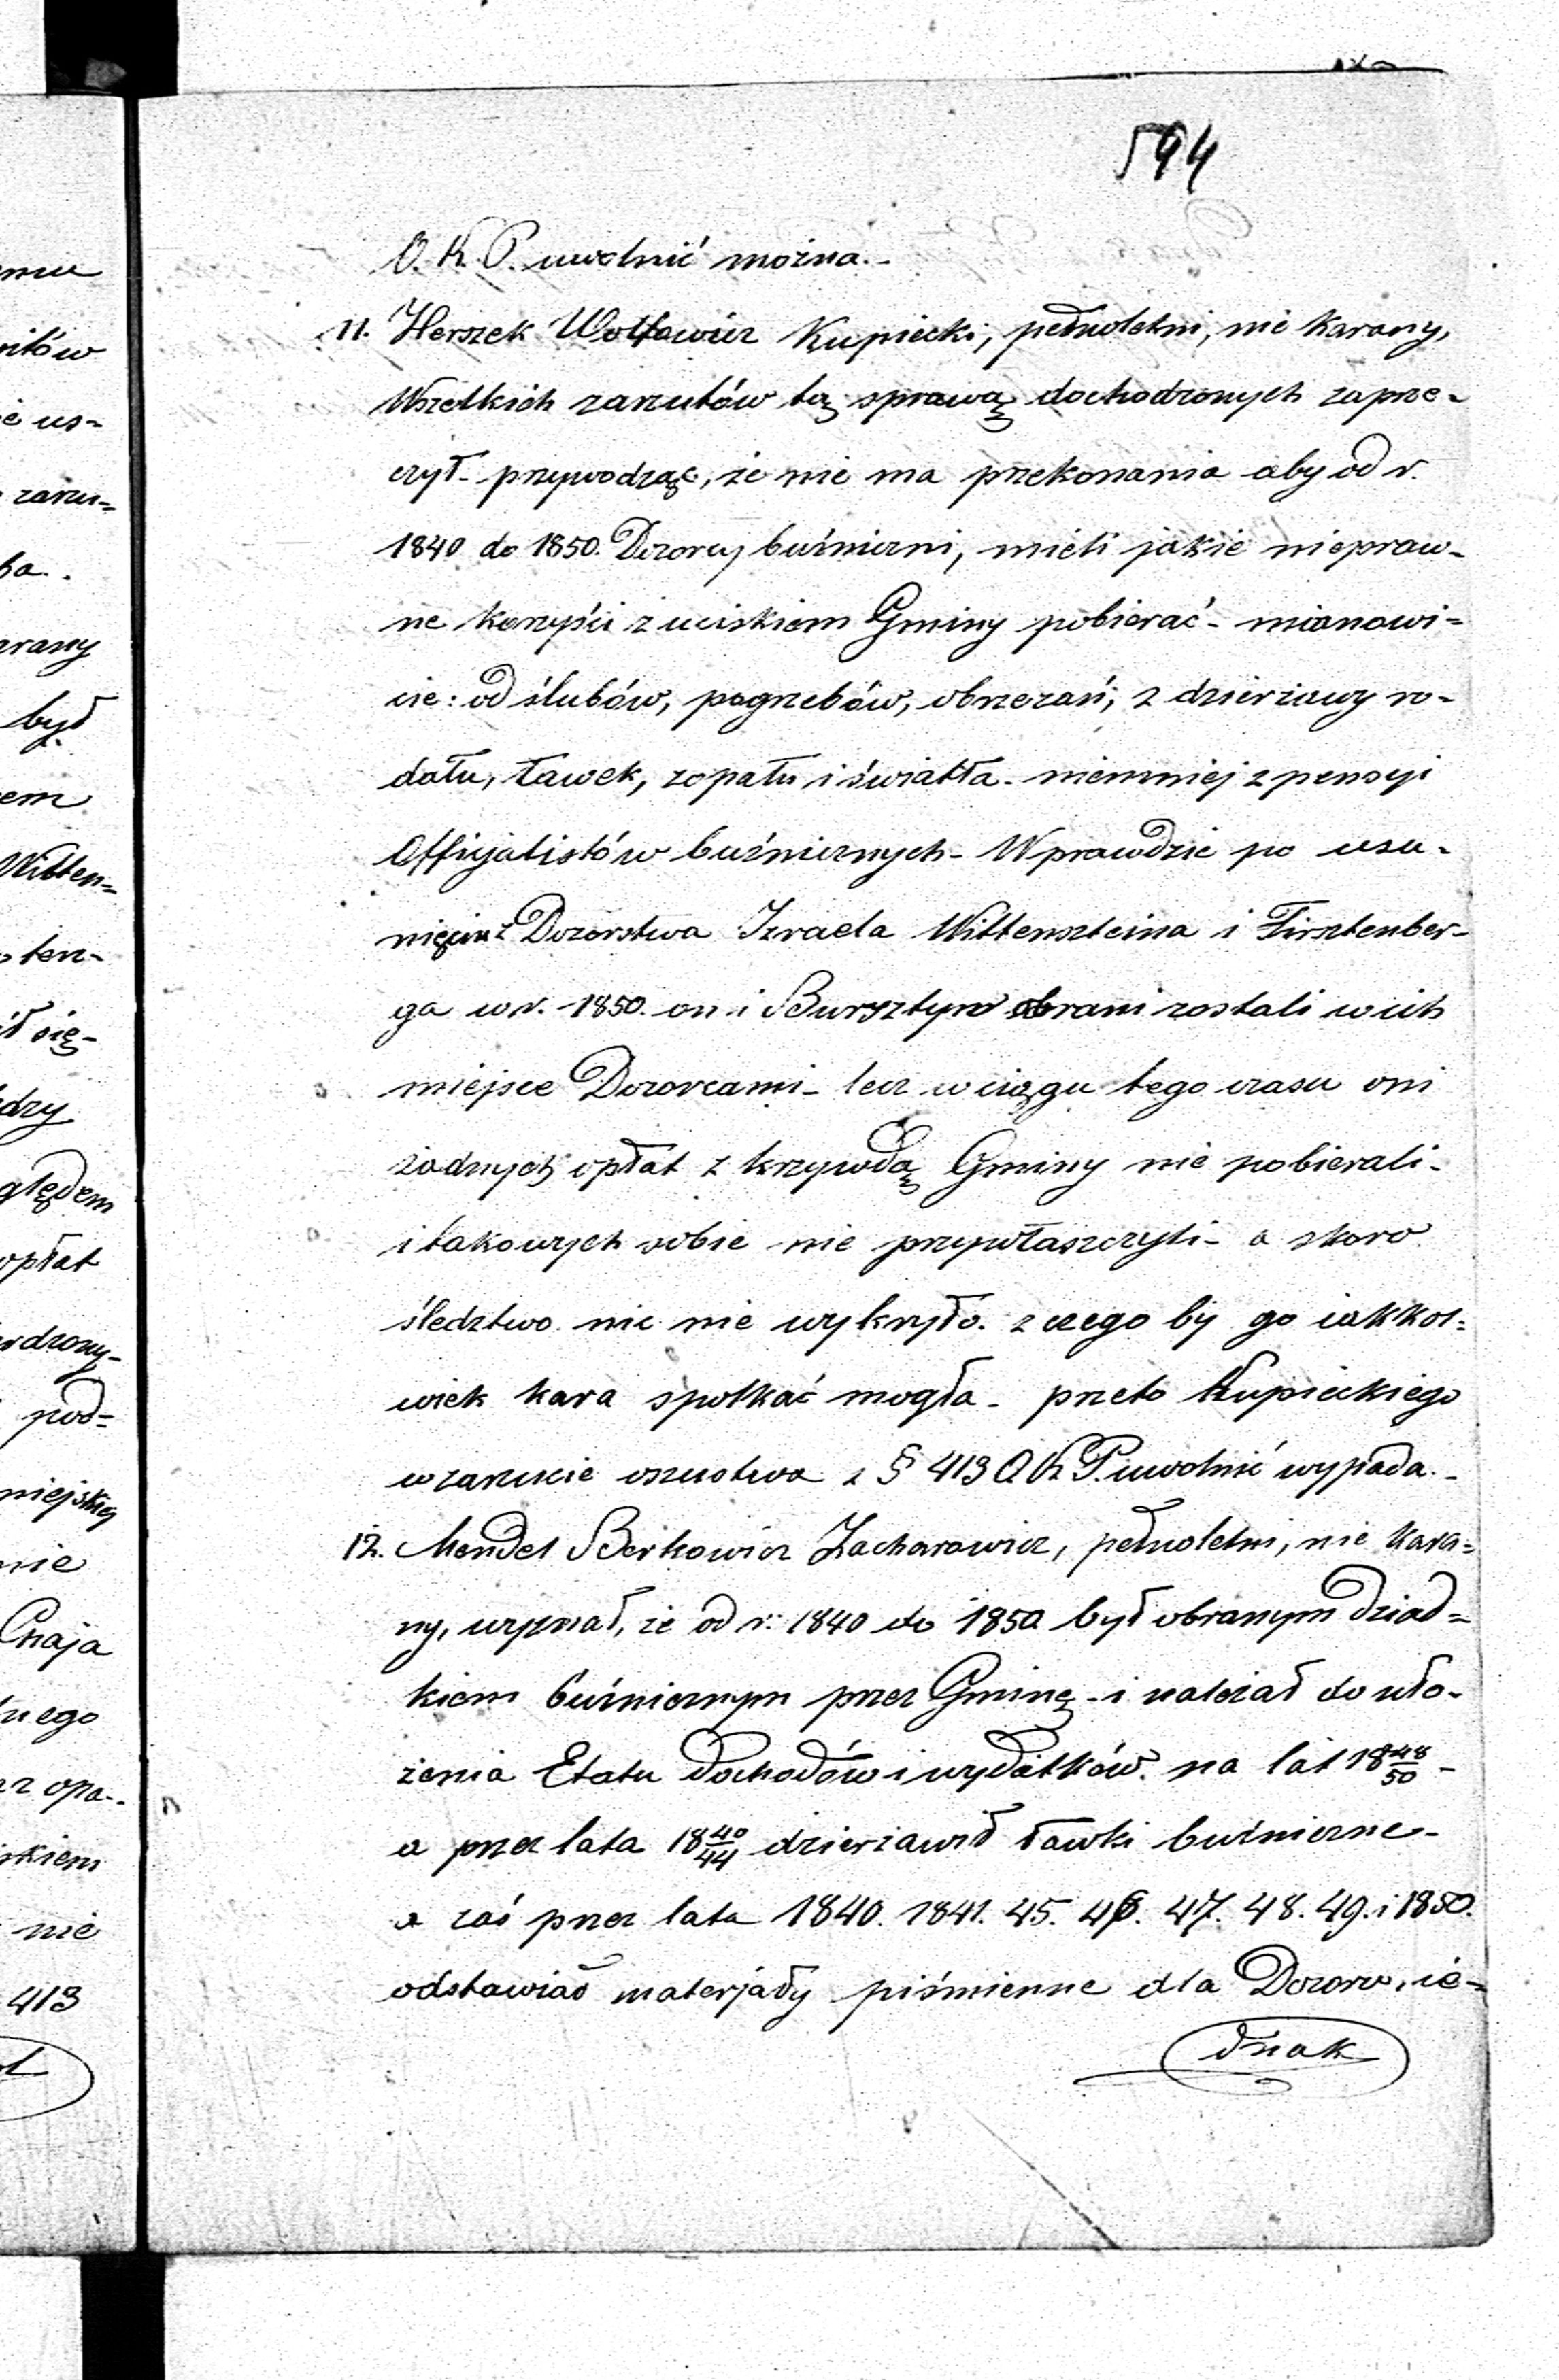 594
O. K. P. uwolnić można.-
11. Herszek Wolfowicz Kupiecki, pełnoletni, nie karany,
Wszelkich zarzutów tą sprawą dochodzonych zaprze-
czył- przywodząc, że nie ma przekonania aby od r.
1840 do 1850. Dozorcy buźniczni, mieli jakie niepraw-
ne korzyści z uciskiem Gminy pobierać- mianowi=
cie: od ślubów, pogrzebów, obrzezań, z dzierżawy ro-
dału, ławek, zopału i światła- niemniej z pensyi
Officjalistów buźnicznych- Wprawdzie po usu-
nięciu z Dozorstwa Izraela Wittenszteina i Firsztenber-
ga w r. 1850. on i Bursztyn obrani zostali w ich
miejsce Dozorcami- lecz w ciągu tego czasu oni
żadnych opłat z krzywdą Gminy nie pobierali-
i takowych sobie nie przywłaszczyli- a skoro
śledztwo nic nie wykryło. z czego by go iakkol=
wiek kara spotkać mogła- przeto Kupieckiego
w zarzucie oszustwa z § 413 O K P. uwolnić wypada.-
12. Mendel Berkowicz Zacharowicz, pełnoletni, nie kara=
ny, wyznał, że od r: 1840 do 1850 był obranym Dziad=
kiem buźnicznym przez Gminę- i należał do uło-
żenia Etatu Dochodów i wydatków. na lat 18 48/50 -
a przez lata 18 40/44 dzierżawił ławki buźniczne-
a zaś przez lata 1840. 1841. 45. 46. 47. 48. 49. i 1850.
odstawiał materjały piśmienne dla Dozoru, ie=
dnak
emu
ritów
ie us=
zarzu=
ba.
arany
był
em
Witten=
ten-
ił się-
edzy
ględem
opłat
erdzony-
pod=
miejskiej
nie
Chaja
nego
az opa-
skiem
nie
413